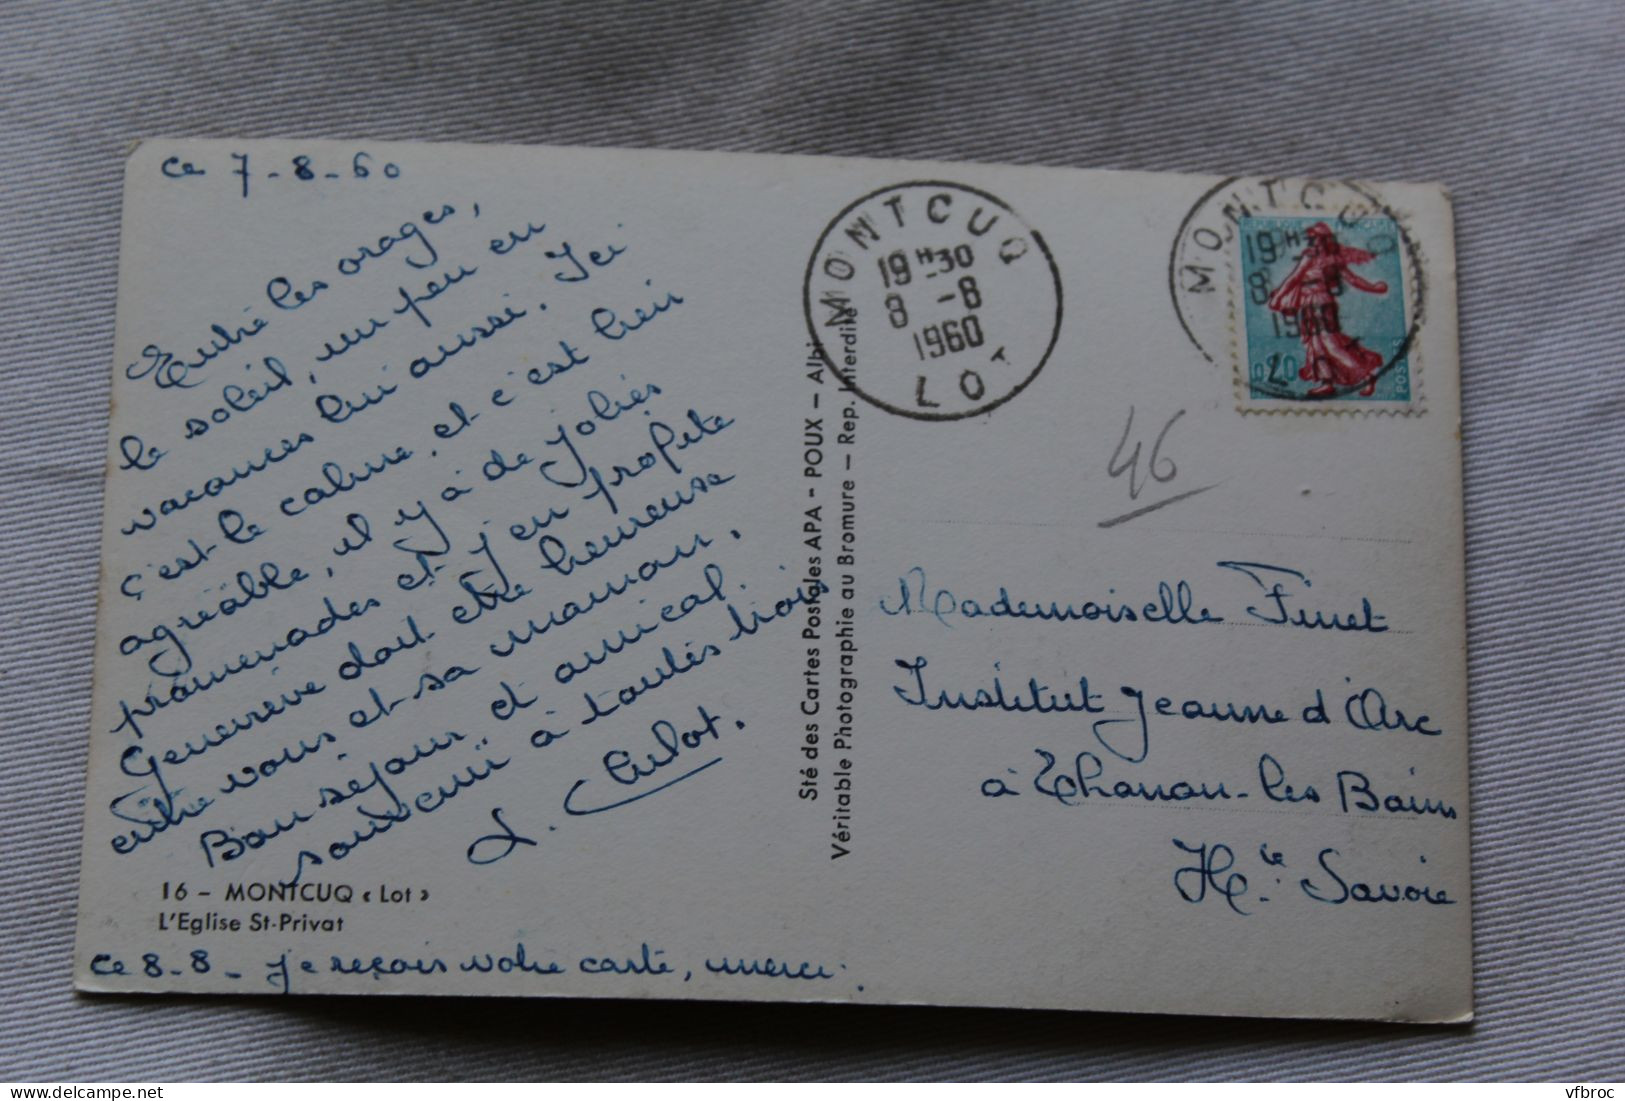 ce 7-8-60
Entre les orages,
le soleil, un peu en
vacances lui aussi. Ici
c'est le calme, et c'est bien
agréable, il y a de jolies
promenades et j'en profite
Geneviève doit être heureuse
entre vous et sa maman.
Bon séjour, et amical
souvenir à toutes trois
16 – MONTCUQ « Lot »
L'Eglise St-Privat
ce 8-8- je reçois votre carte, merci.
Sté des Cartes Postales APA – POUX – Albi
Véritable Photographie au Bromure – Rep. Interdite
MONTCUQ
19 H 30
8 -8
1960
LOT
MONTCUQ
19 H 30
8 -8
1960
LOT
0,20
POSTES
46
Mademoiselle Finet
Institut Jeanne d'Arc
à Thonon-les Bains
Hte Savoie
vfbroc